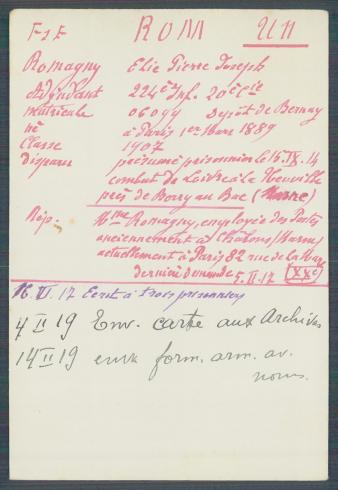 FzE ROM UN
Romagny Elie Pierre Joseph
Adjudant 224e Inf. 20e Cie
matricule 06099 Dépôt de Bernay
né à Paris 1er Mars 1889
Classe 1907
Disparu présumé prisonnier le 15.IX.14
combat de Loivre à la Neuville
près de Berry au Bac (Marne)
Rép. Mme Romagny, employée des Postes
anciennement à Châlons/Marne
actuellement à Paris 82 rue de la
dernière demande 5.II.17 (XXe)
16.VI.17 Ecrit à trois prisonniers
4 II 19 Env. carte aux Archives
14 II 19 form. arm. av.